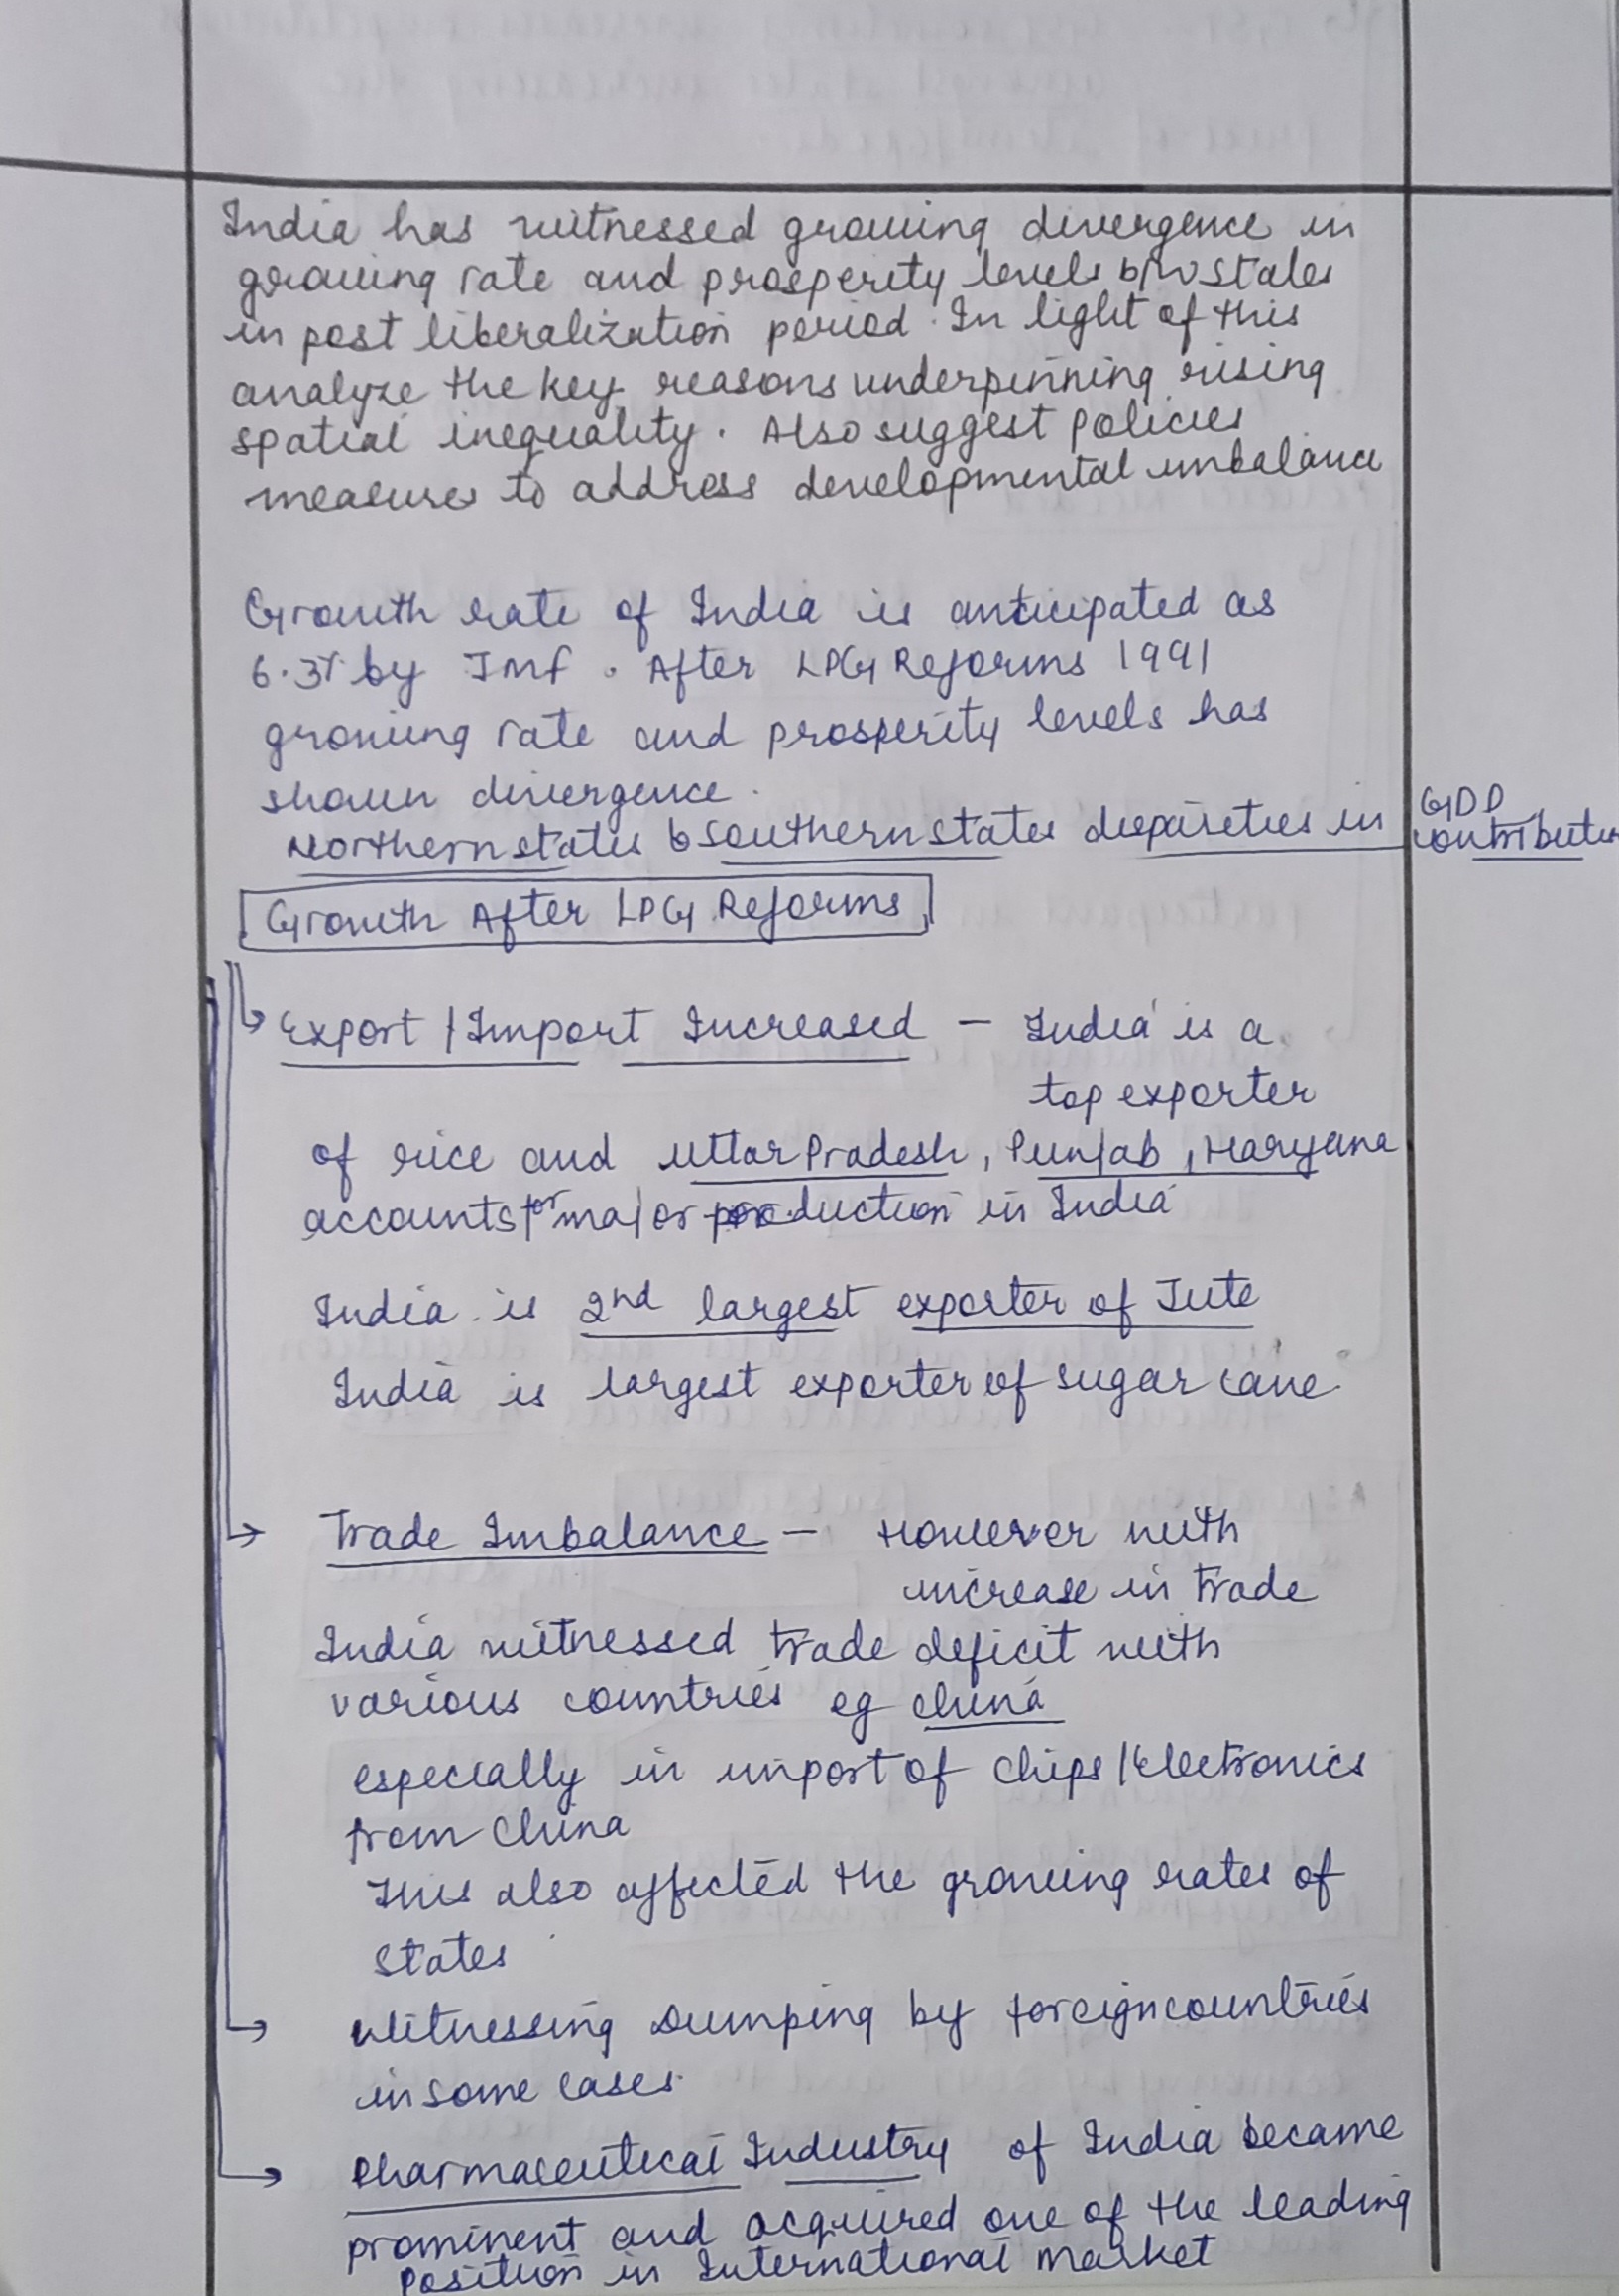 India has witnessed growing divergence in
growing rate and prosperity levels b/w states
in post liberalization period. In light of this
analyze the key reasons underpinning rising
spatial inequality. Also suggest policies
measures to address developmental imbalance
Growth rate of India is anticipated as
6.3% by Imf. After LPG Reforms 1991
growing rate and prosperity levels has
shown divergence.
Northern states & southern states disparities in GDP contribution
Growth After LPG Reforms
Export / Import Increased - India is a
top exporter
of rice and Uttar Pradesh, Punjab, Haryana
accounts for major production in India
India is 2nd largest exporter of Jute
India is largest exporter of sugar cane.
Trade Imbalance - However with
increase in trade
India witnessed trade deficit with
various countries eg China
especially in import of chips / Electronics
from China
This also affected the growing rates of
states
Witnessing Dumping by foreign countries
in some cases.
Pharmaceutical Industry of India became
prominent and acquired one of the leading
position in International market